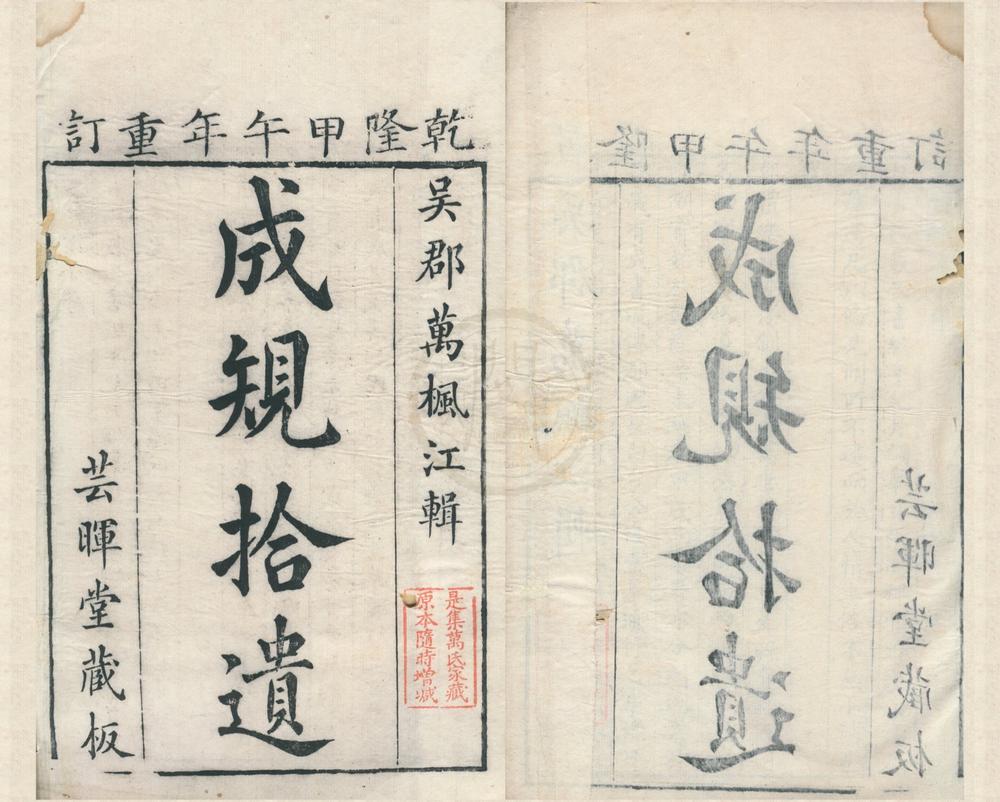 乾隆甲午年重訂
吴郡萬楓江輯
是集萬氏家藏
原本隨時增减
成規拾遺
芸暉堂藏板